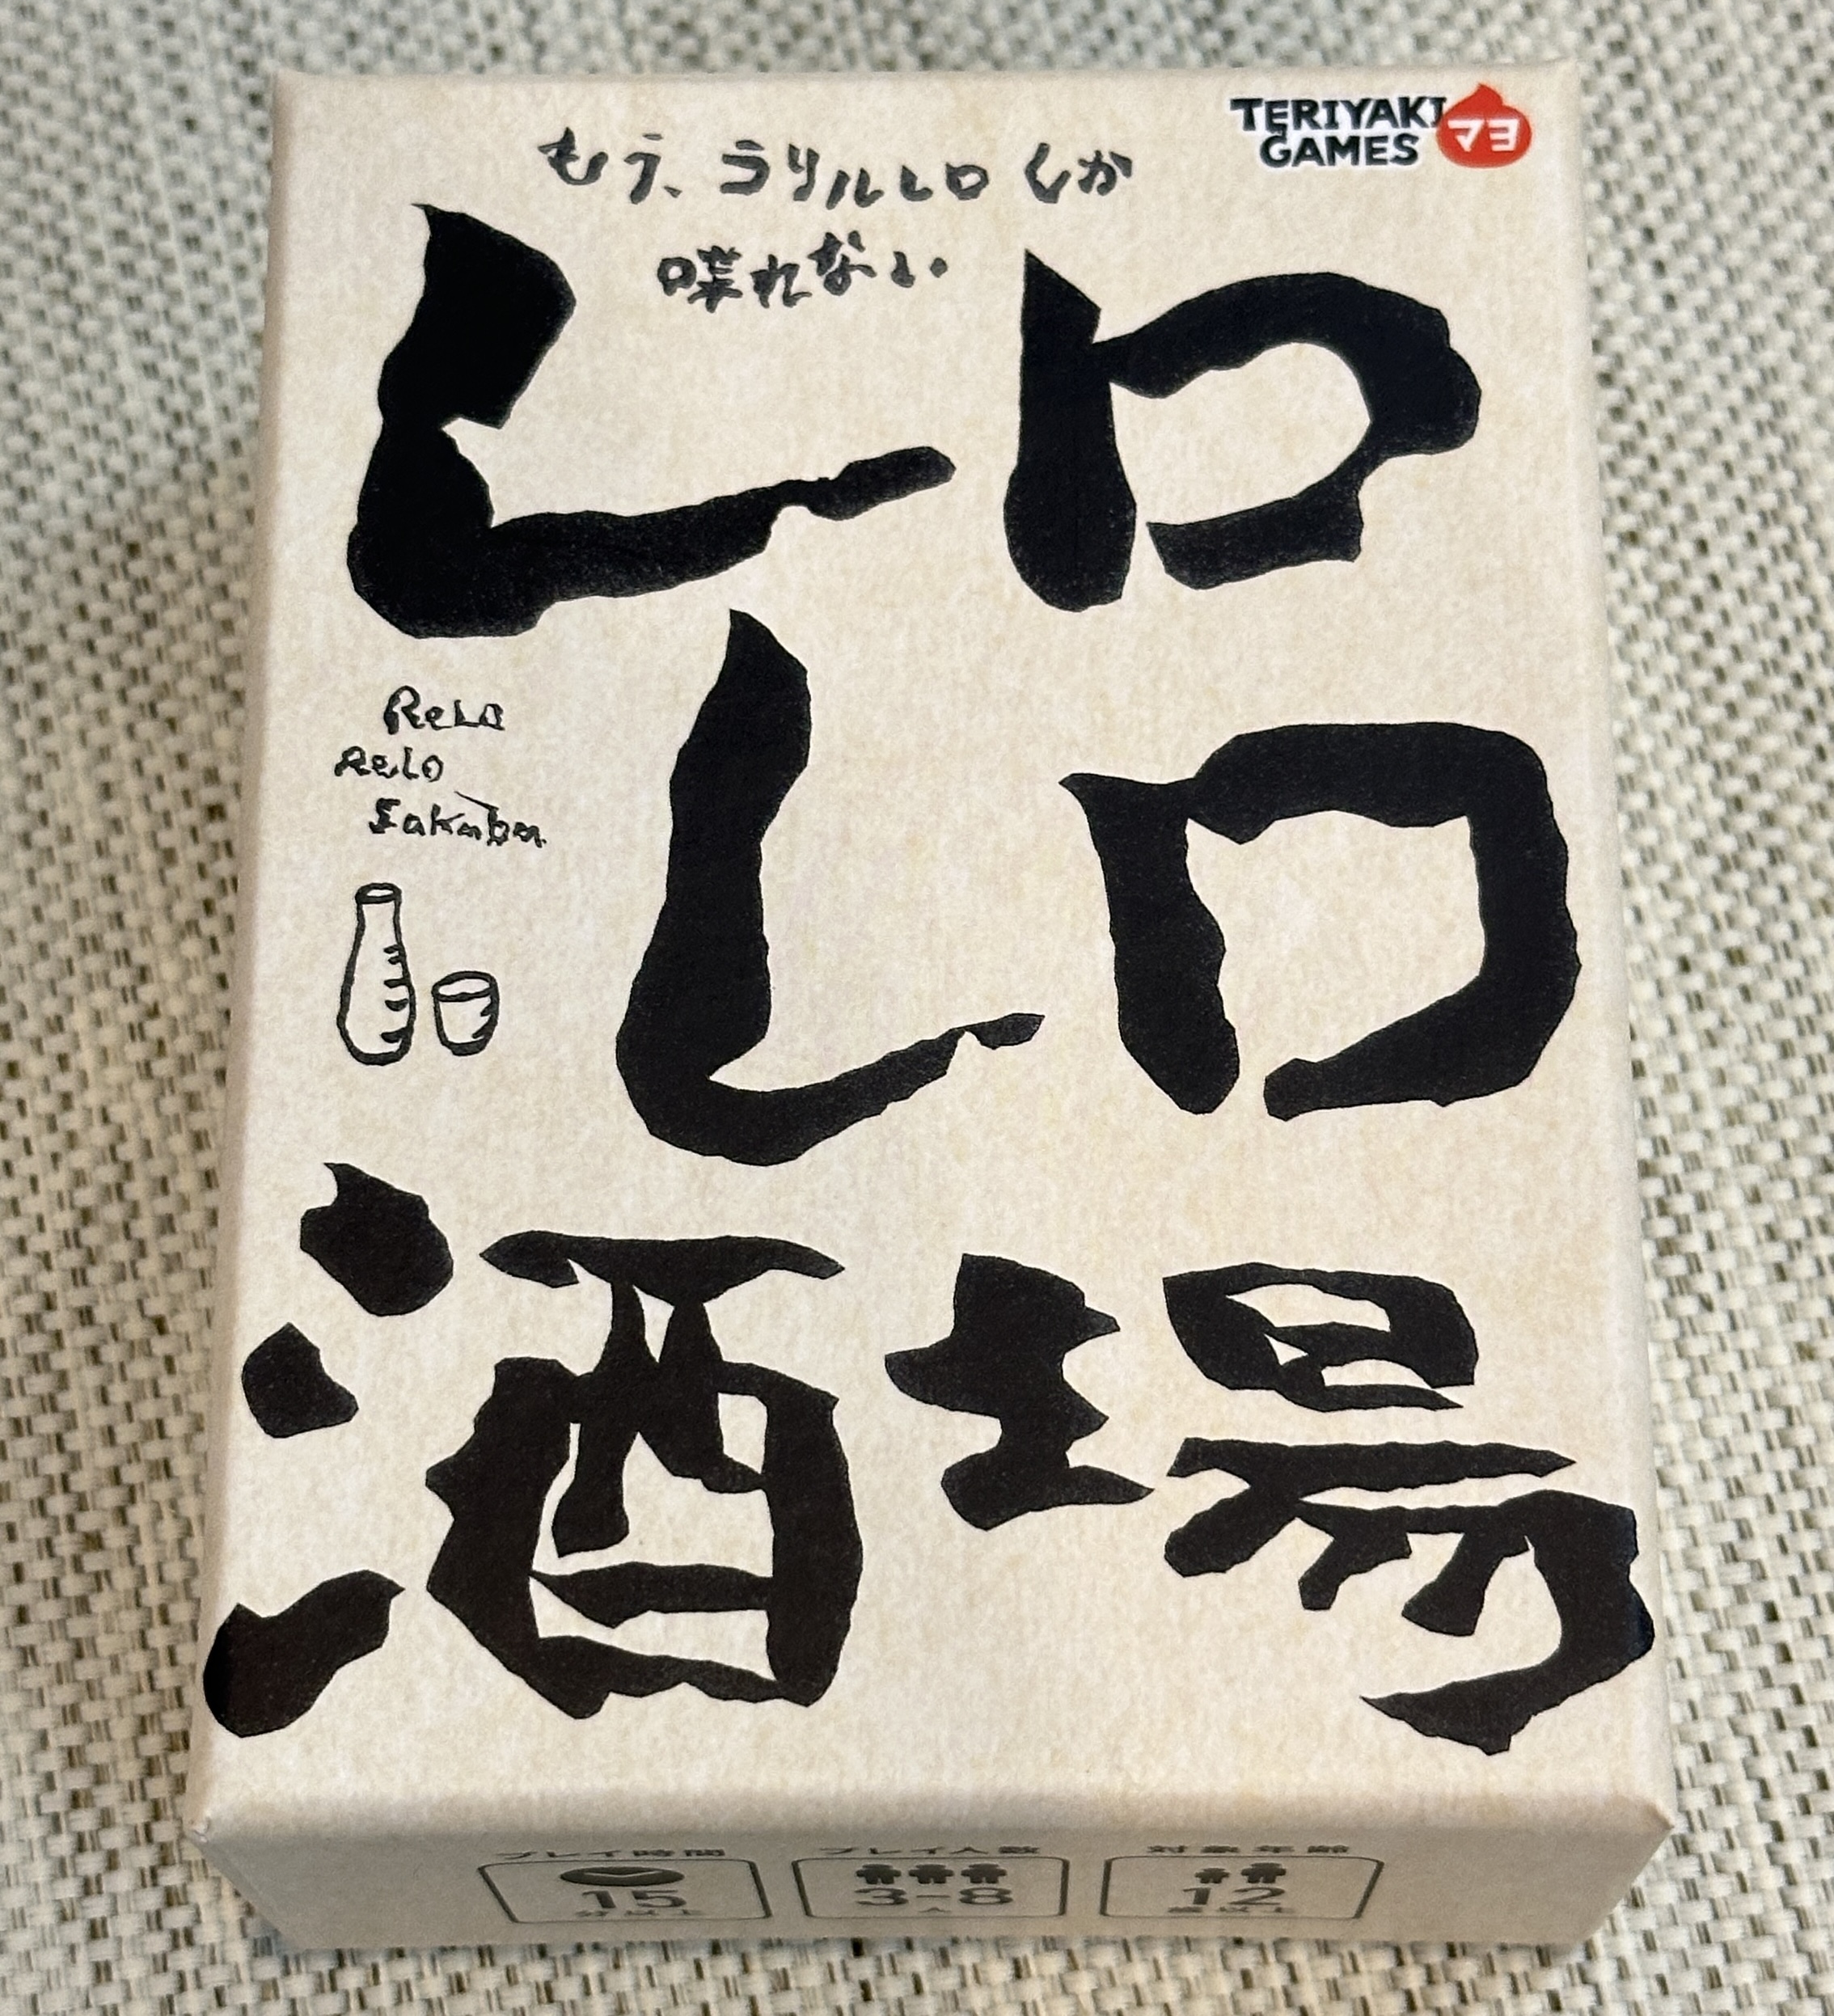 もう、ラリルレロしか
喋れない
TERIYAKI
GAMES マヨ
レロ
レロ
ReLo
ReLo
Sakaba
酒場
プレイ時間
15
分以上
プレイ人数
3-8
人
対象年齢
12
歳以上